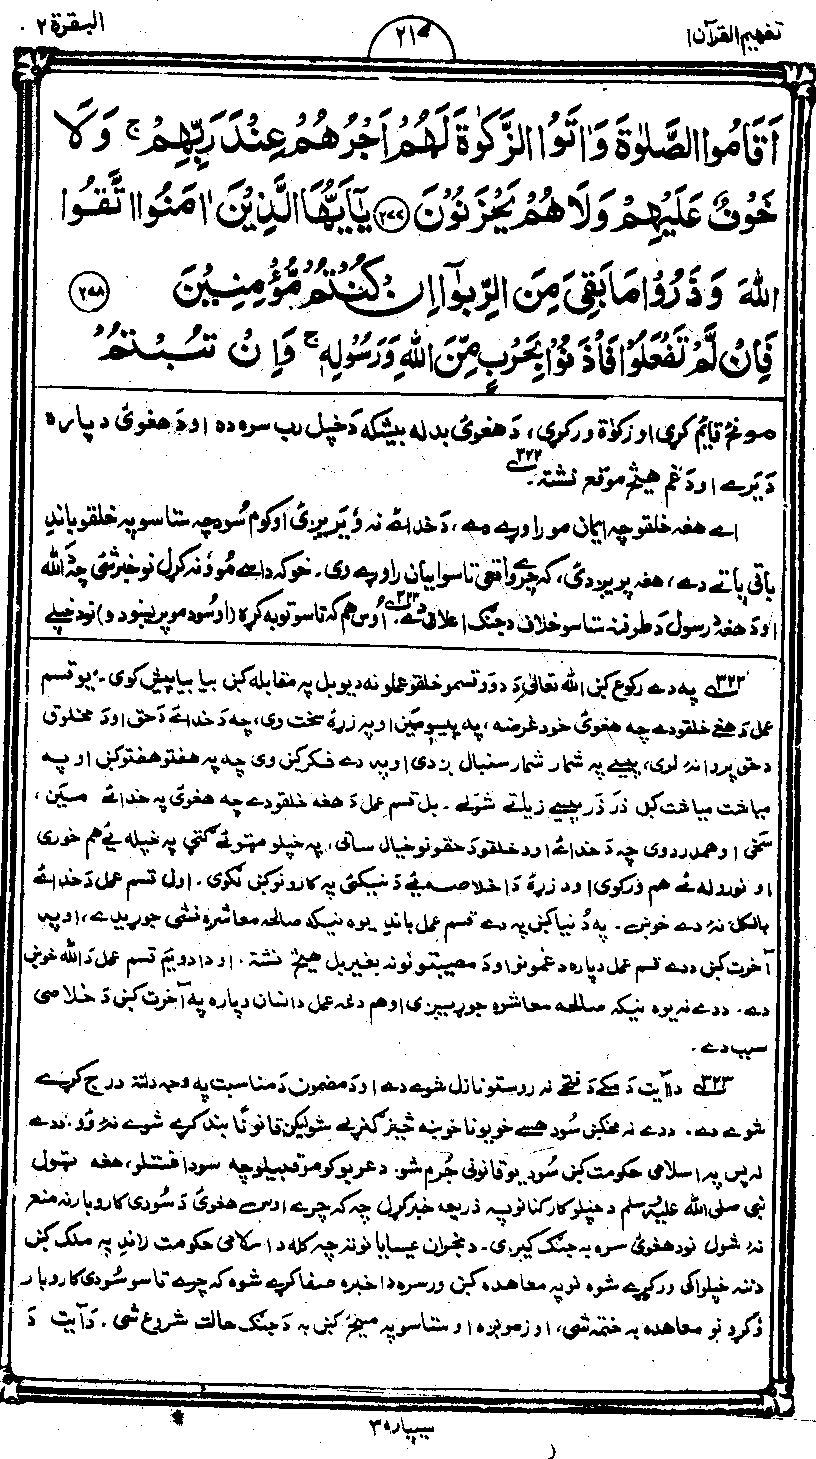 تفهیم القرآن ۱
۲۱۰
البقرة ۲
اَقَامُوا الصَّلٰوةَ وَاٰتَوُا الزَّكٰوةَ لَهُمْ اَجْرُهُمْ عِنْدَ رَبِّهِمْ ج وَلَا
خَوْفٌ عَلَيْهِمْ وَلَا هُمْ يَحْزَنُوْنَ ۲۷۷ يٰۤاَيُّهَا الَّذِيْنَ اٰمَنُوا اتَّقُوا
اللهَ وَذَرُوْا مَا بَقِيَ مِنَ الرِّبٰۤوا اِنْ كُنْتُمْ مُّؤْمِنِيْنَ ۲۷۸
فَاِنْ لَّمْ تَفْعَلُوْا فَاْذَنُوْا بِحَرْبٍ مِّنَ اللهِ وَرَسُوْلِهٖ ج وَاِنْ تُبْتُمْ
مونځ قایم کړی او زکوٰة ورکړی، دَ هغوئ بدله بیشکه دَ خپل رب سره ده او دَ هغوئ دپاره
دَ یرے او دَ غم هیڅ موقع نشته۔ ۳۲۲
اے هغه خلقو چه ایمان مو راوړے دے، دَ خدائے نه وُیریږئ او کوم سُود چه ستاسو په خلقو باندِ
باقی پاتے دے، هغه پریږدئ، که چرے واقعی تاسو ایمان راوړے وی۔ خو که داسے مُو وُ نه کړل نو خبر شئ چه دَ الله
او دَ هغهٔ رسول دَ طرفنه ستاسو خلاف دجنګ اعلان دے۔ ۳۲۳ اُوس هم که تاسو توبه وکړه (او سُود مو پرینښود و) نو دخپلے
۳۲۲ په دے رکوع کښ الله تعالیٰ دَ دوو قسمو خلقو عملونه دیو بل په مقابله کښ بیا بیا پیش کوی۔ یو قسم
عمل دَ هغے خلقو دے چه هغوئ خود غرضه، په پیسو مَین او په زړهٔ سخت وی، چه دَ خدائے دَ حق او دَ مخلوق
دحق پروا نهٔ لری، پیسے په شمار شمار سنبال ږدی او په دے فکر کښ وی چه په هفتو هفتو کښ او په
میاشت میاشت کښ دَر دَر پیسے زیاتے شولے۔ بل قسم عمل دَ هغه خلقو دے چه هغوئ په خدائے مَین،
سخی او همدرد وی چه دَ خدائے او د خلقو دَ حقونو خیال ساتی، په خپلو مټو ئے ګټی په خپله ئے هم خوری
او نورو له ئے هم ورکوی او د زړهٔ دَ اخلاصه ئے دَ نیکئ په کارونو کښ لګوی۔ اول قسم عمل دَ خدائے
بالکل نهٔ دے خوښ۔ په دُنیا کښ په دے قسم عمل باندِ یوه نیکه صالحه معاشره نشی جوړیدے، او په
آخرت کښ ددے قسم عمل دپاره دغمونو او دَ مصیبتونو نه بغیر بل هیڅ نشته۔ او دا دویم قسم عمل دَ الله خوښ
دے۔ ددے نه یوه نیکه صالحه معاشره جوړیږی او هم دغه عمل دانسان دپاره په آخرت کښ دَ خلاصی
سبب دے۔
۳۲۳ دا آیت دَ مکے دَ فتحے نه روستو نازل شوے دے او دَ مضمون دَ مناسبت په وجه دلته درج کړے
شوے دے۔ ددے نه مخکښ سُود هسے خو یو ناخوښه څیز ګڼړلے شو لیکن قانونًا بند کړے شوے نهٔ وُو۔ ددے
نه پس په اسلامی حکومت کښ سُود یو قانونی جُرم شو۔ دعربو کومو قبیلو چه سود اخستلو، هغه ټول
نبی صلی الله علیه وسلم دخپلو کارکنانو په ذریعه خبر کړل چه که چرے اوس هغوئ دَ سُودی کاروبار نه منع
نهٔ شول نو د هغوئ سره به جنګ کیږی۔ د نجران عیسایانو نه چه کله د اسلامی حکومت لاندِ په ملک کښ
دننه خپلواکی ورکړے شوه نو په معاهده کښ ورسره دا خبره صفا کړے شوه که چرے تاسو سُودی کاروبار
وُکړو نو معاهده به ختمه شی، او زمونږه او ستاسو په مینځ کښ به دَ جنګ حالت شروع شی۔ دَ آیت دَ
سیپاره ۳